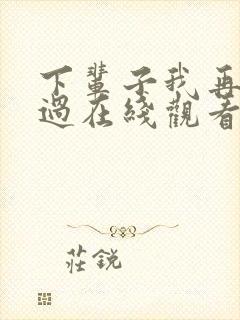 下輩子我再
過在綫觀看
莊鋭